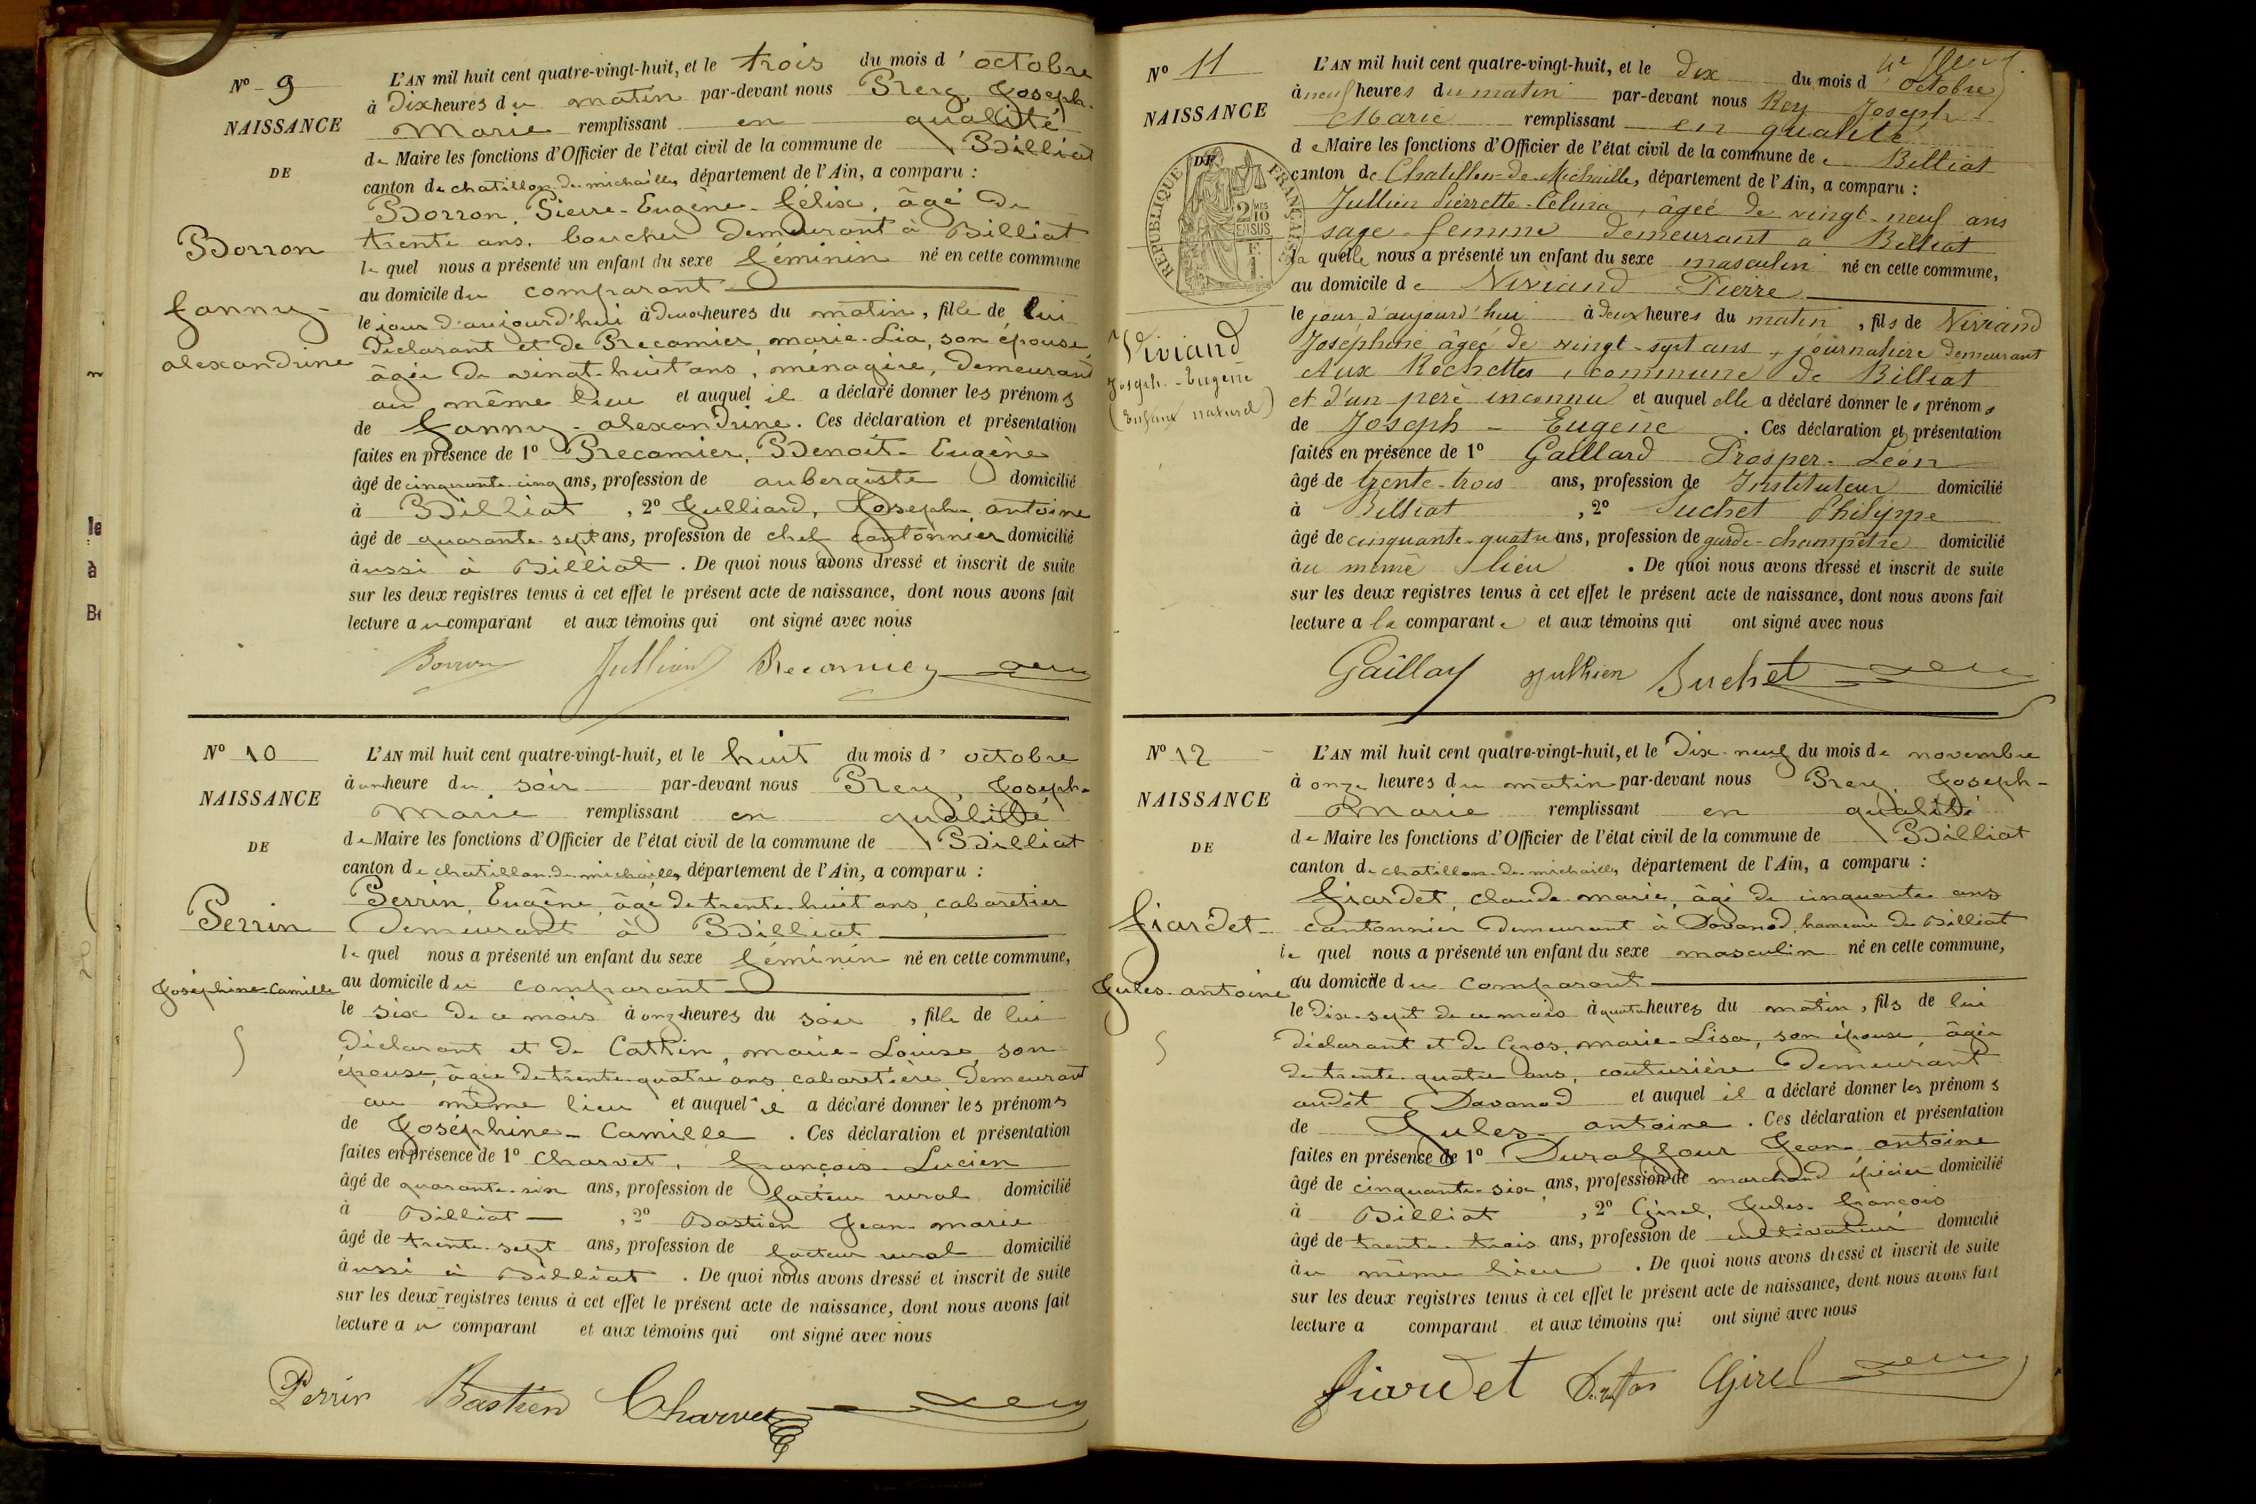 N° 9
NAISSANCE
DE
Borron
fanny-
alexandrine
L'AN mil huit cent quatre-vingt-huit, et le trois du mois d'octobre
à Dix heures du matin par-devant nous Rey, Joseph-
Marie remplissant en qualité
de Maire les fonctions d'Officier de l'état civil de la commune de Billiat
canton de chatillon-de-michaille, département de l'Ain, a comparu :
Borron, Pierre-Eugène-félix, âgé de
trente ans, boucher demeurant à Billiat
le quel nous a présenté un enfant du sexe féminin né en cette commune
au domicile du comparant
le jour d'aujourd'hui à deux heures du matin, fille de lui
déclarant et de Recamier, marie-Lia, son épouse,
âgée de vingt-huit ans, ménagère, demeurant
au même lieu et auquel il a déclaré donner les prénoms
de fanny-alexandrine. Ces déclaration et présentation
faites en présence de 1° Recamier, Benoit-Eugène
âgé de cinquante-cinq ans, profession de aubergiste domicilié
à Billiat, 2° Julliard, Joseph antoine
âgé de quarante-sept ans, profession de chef cantonnier domicilié
aussi à Billiat. De quoi nous avons dressé et inscrit de suite
sur les deux registres tenus à cet effet le présent acte de naissance, dont nous avons fait
lecture au comparant et aux témoins qui ont signé avec nous
Borron Julliard Recamier Rey
N° 10
NAISSANCE
DE
Perrin
Joséphine-Camille
L'AN mil huit cent quatre-vingt-huit, et le huit du mois d'octobre
à un heure du soir par-devant nous Rey, Joseph-
Marie remplissant en qualité
de Maire les fonctions d'Officier de l'état civil de la commune de Billiat
canton de chatillon-de-michaille, département de l'Ain, a comparu :
Perrin, Eugène, âgé de trente-huit ans, cabaretier
demeurant à Billiat
le quel nous a présenté un enfant du sexe féminin né en cette commune,
au domicile du comparant
le six de ce mois à onze heures du soir, fille de lui
déclarant et de Cattin, marie-Louise, son
épouse, âgée de trente-quatre ans, cabaretière, demeurant
au même lieu et auquel il a déclaré donner les prénoms
de Joséphine-Camille. Ces déclaration et présentation
faites en présence de 1° Charvet, françois-Lucien
âgé de quarante-six ans, profession de facteur rural domicilié
à Billiat, 2° Bastien Jean-marie
âgé de trente-sept ans, profession de facteur rural domicilié
aussi à Billiat. De quoi nous avons dressé et inscrit de suite
sur les deux registres tenus à cet effet le présent acte de naissance, dont nous avons fait
lecture au comparant et aux témoins qui ont signé avec nous
Perrin Bastien Charvet Rey
N° 11
NAISSANCE
DE
RÉPUBLIQUE FRANÇAISE
Viviand
Joseph-Eugène
(Enfant naturel)
L'AN mil huit cent quatre-vingt-huit, et le dix du mois d'octobre
à neuf heures du matin par-devant nous Rey Joseph
Marie remplissant en qualité
de Maire les fonctions d'Officier de l'état civil de la commune de Billiat
canton de Chatillon-de-Michaille, département de l'Ain, a comparu :
Jullien Pierrette-Célina, âgée de vingt-neuf ans
sage-femme demeurant à Billiat
la quelle nous a présenté un enfant du sexe masculin né en cette commune,
au domicile de Viviand Pierre
le jour d'aujourd'hui à deux heures du matin, fils de Viviand
Joséphine âgée de vingt-sept ans, journalière demeurant
Aux Rochettes, commune de Billiat
et d'un père inconnu et auquel elle a déclaré donner les prénoms
de Joseph-Eugène. Ces déclaration et présentation
faites en présence de 1° Gaillard Prosper-Léon
âgé de trente-trois ans, profession de Instituteur domicilié
à Billiat, 2° Buchet Philippe
âgé de cinquante-quatre ans, profession de garde-champêtre domicilié
au même lieu. De quoi nous avons dressé et inscrit de suite
sur les deux registres tenus à cet effet le présent acte de naissance, dont nous avons fait
lecture a la comparante et aux témoins qui ont signé avec nous
Gaillard Jullien Buchet Rey
N° 12
NAISSANCE
DE
fiardet
Jules-antoine
L'AN mil huit cent quatre-vingt-huit, et le Dix-neuf du mois de novembre
à onze heures du matin par-devant nous Rey, Joseph-
Marie remplissant en qualité
de Maire les fonctions d'Officier de l'état civil de la commune de Billiat
canton de chatillon-de-michaille, département de l'Ain, a comparu :
fiardet, claude-marie, âgé de cinquante ans
cantonnier demeurant à Davanod, hameau de Billiat
le quel nous a présenté un enfant du sexe masculin né en cette commune,
au domicile du comparant
le dix-sept de ce mois à quatre heures du matin, fils de lui
déclarant et de Gros, marie-Lisa, son épouse, âgée
de trente-quatre ans, couturière demeurant
audit Davanod et auquel il a déclaré donner les prénoms
de Jules-antoine. Ces déclaration et présentation
faites en présence de 1° Duraffour Jean-antoine
âgé de cinquante-six ans, profession de marchand épicier domicilié
à Billiat, 2° Girel, Jules-françois
âgé de trente-trois ans, profession de cultivateur domicilié
au même lieu. De quoi nous avons dressé et inscrit de suite
sur les deux registres tenus à cet effet le présent acte de naissance, dont nous avons fait
lecture a comparant et aux témoins qui ont signé avec nous
fiardet Girel Rey